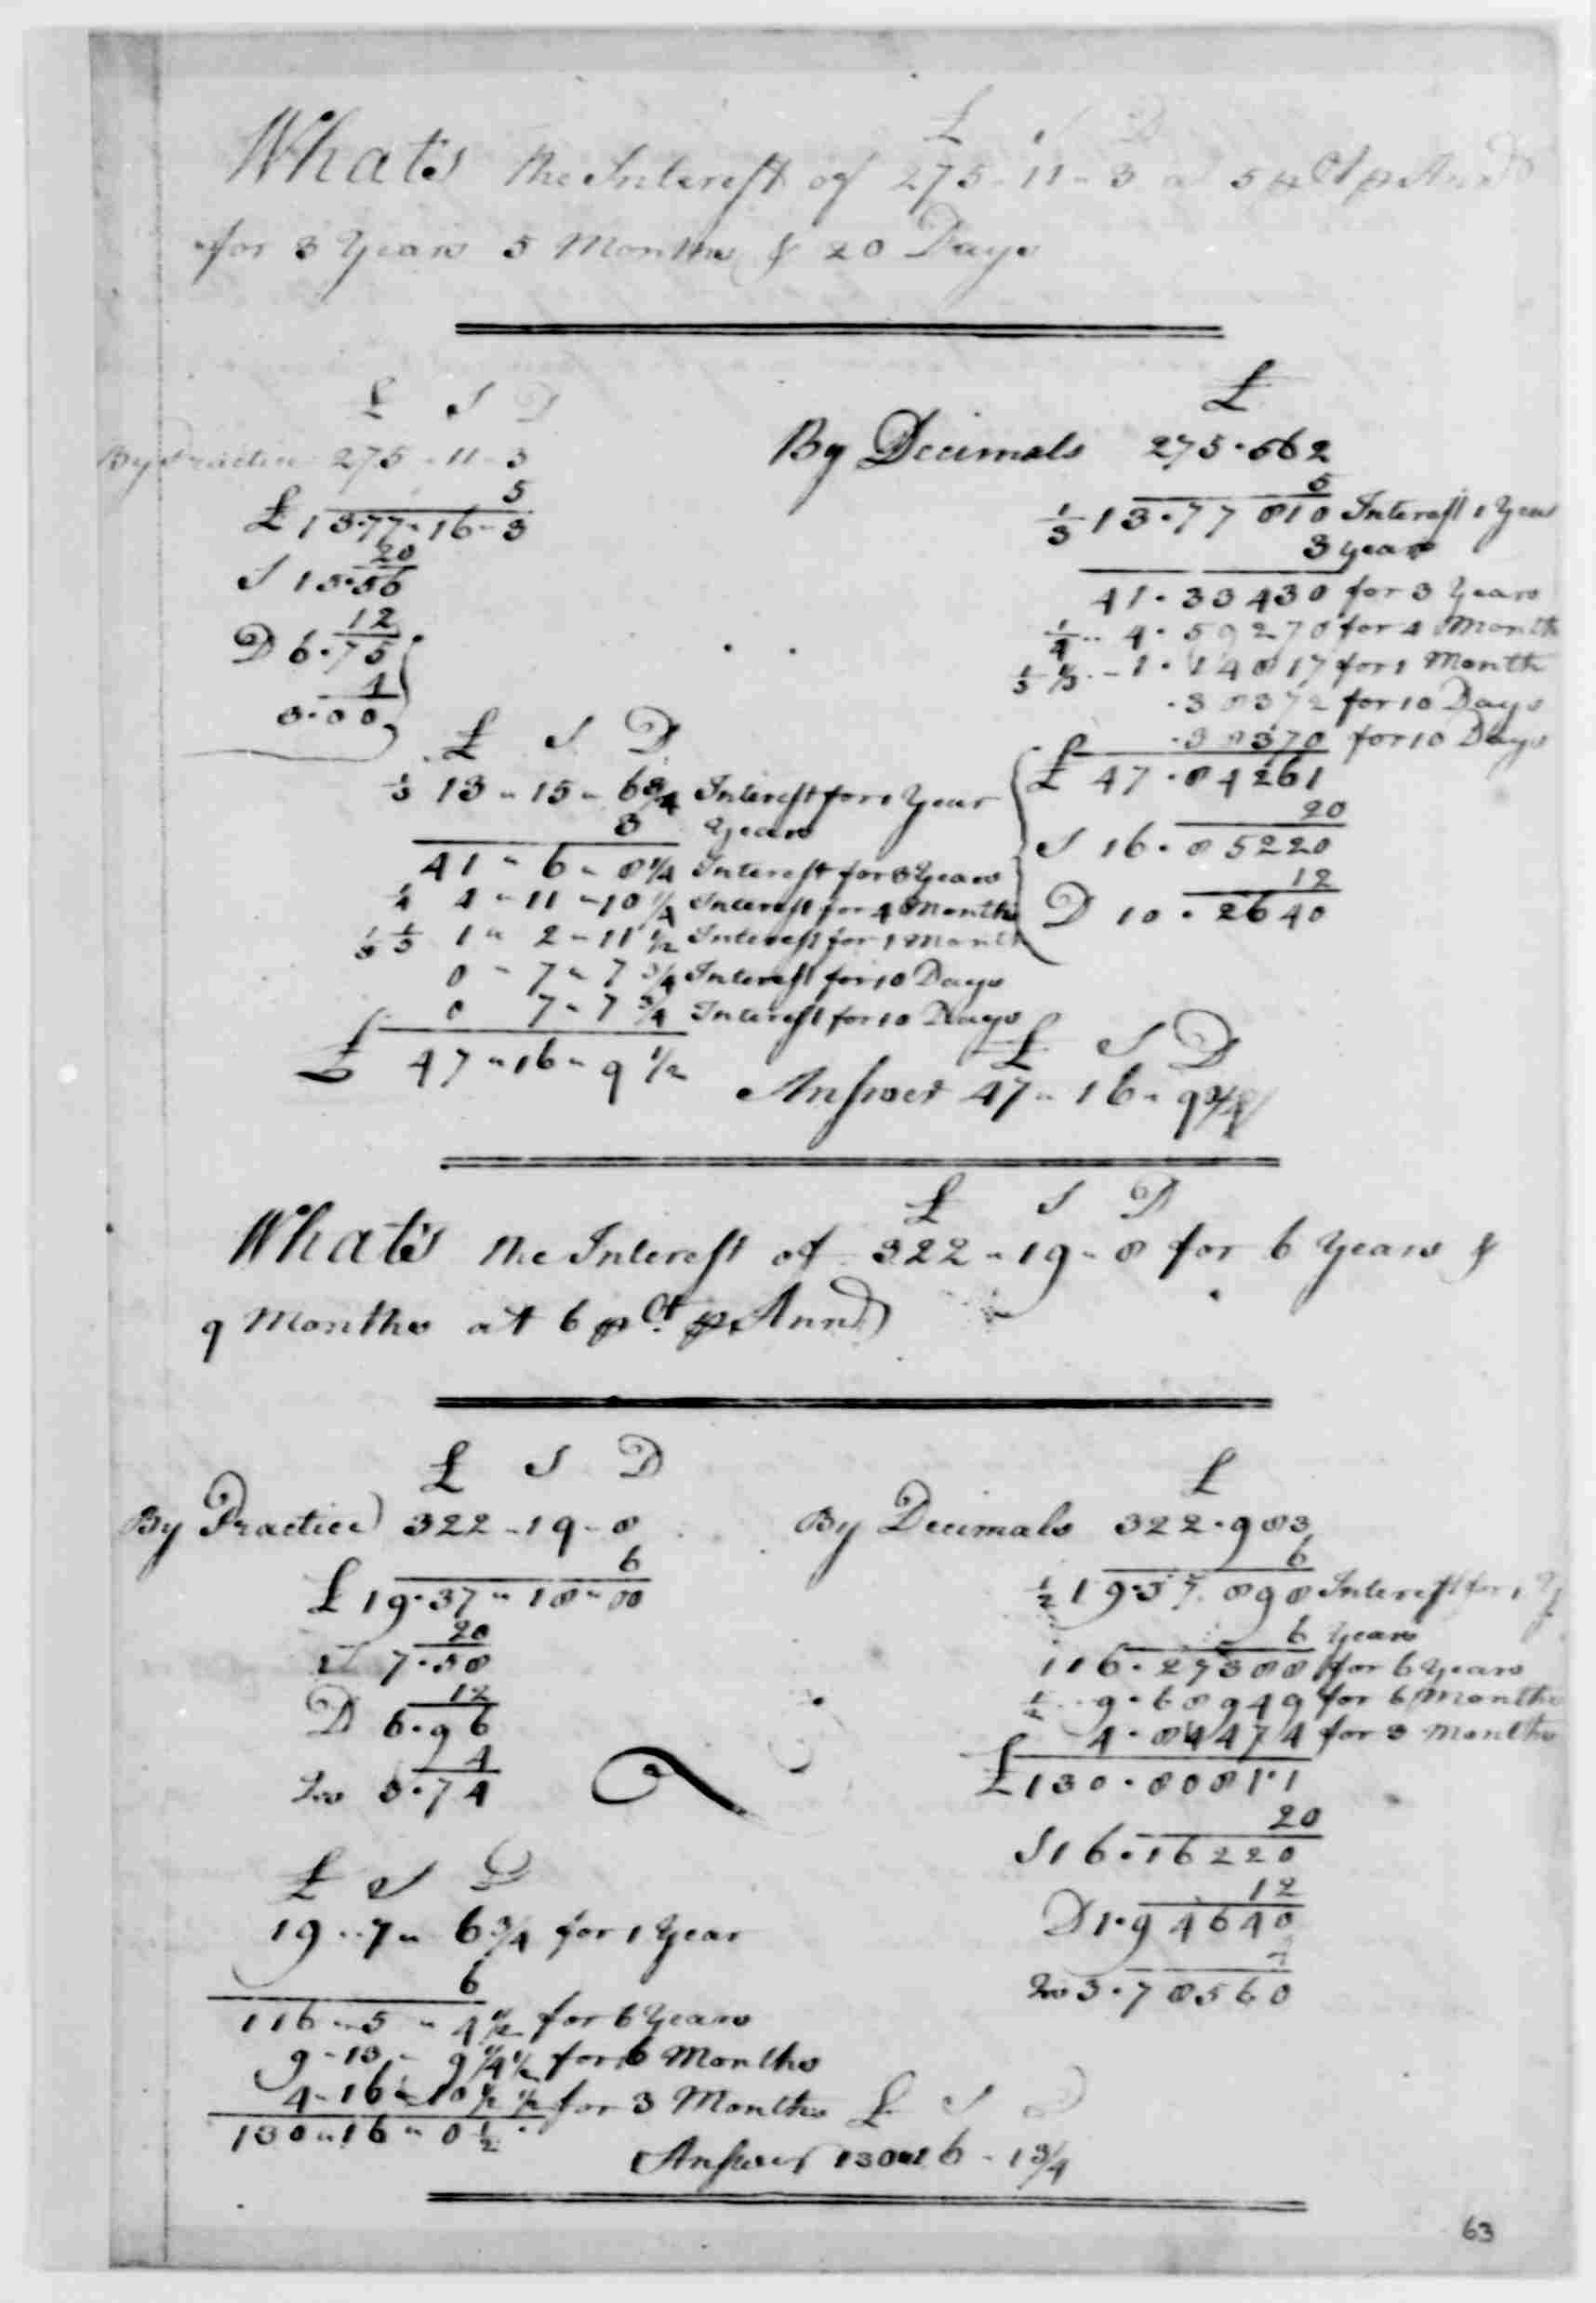 £ S D
What's the Interest of 275-11-3 at 5 p Ct p Ann
for 3 Years 5 Months & 20 Days
£ S D
By Practice 275-11-3
5
£ 13.77-16-3
20
S 15.56
12
D 6.75
4
3.00
£ S D
1/3 13-15-6 3/4 Interest for 1 Year
3 Years
41-6-8 1/4 Interest for 3 Years
1/4 4-11-10 1/4 Interest for 4 Months
1/3 1/3 1-2-11 1/2 Interest for 1 Month
0-7-7 3/4 Interest for 10 Days
0 7-7 3/4 Interest for 10 Days
£ 47-16-9 1/2
£
By Decimals 275.562
5
1/3 13.77810 Interest 1 Year
3 years
41.33430 for 3 Years
1/4 4.59270 for 4 Months
1/3 1/3 1.14817 for 1 Month
.38372 for 10 Days
.38370 for 10 Days
£ 47.84261
20
S 16.85220
12
D 10.2640
£ S D
Answer 47-16-9 3/4
£ S D
What's the Interest of 322-19-8 for 6 Years &
9 Months at 6 p Ct. p Ann
£ S D
By Practice 322-19-8
6
£ 19.37-18-00
20
S 7.58
12
D 6.96
4
Qrs 3.74
£ S D
19-7-6 3/4 for 1 Year
6
116-5-4 1/2 for 6 Years
9-13-9 1/4 1/2 for 6 Months
4-16-10 1/2 1/2 for 3 Months
130-16-0 1/2
£
By Decimals 322.983
6
1/2 19.37898 Interest for 1 Y
6 Years
116.27388 for 6 Years
9.68949 for 6 Months
4.84474 for 3 Months
£ 130.80811
20
S 16.16220
12
D 1.94640
4
Qrs 3.78560
£ S D
Answer 130-16-1 3/4
63